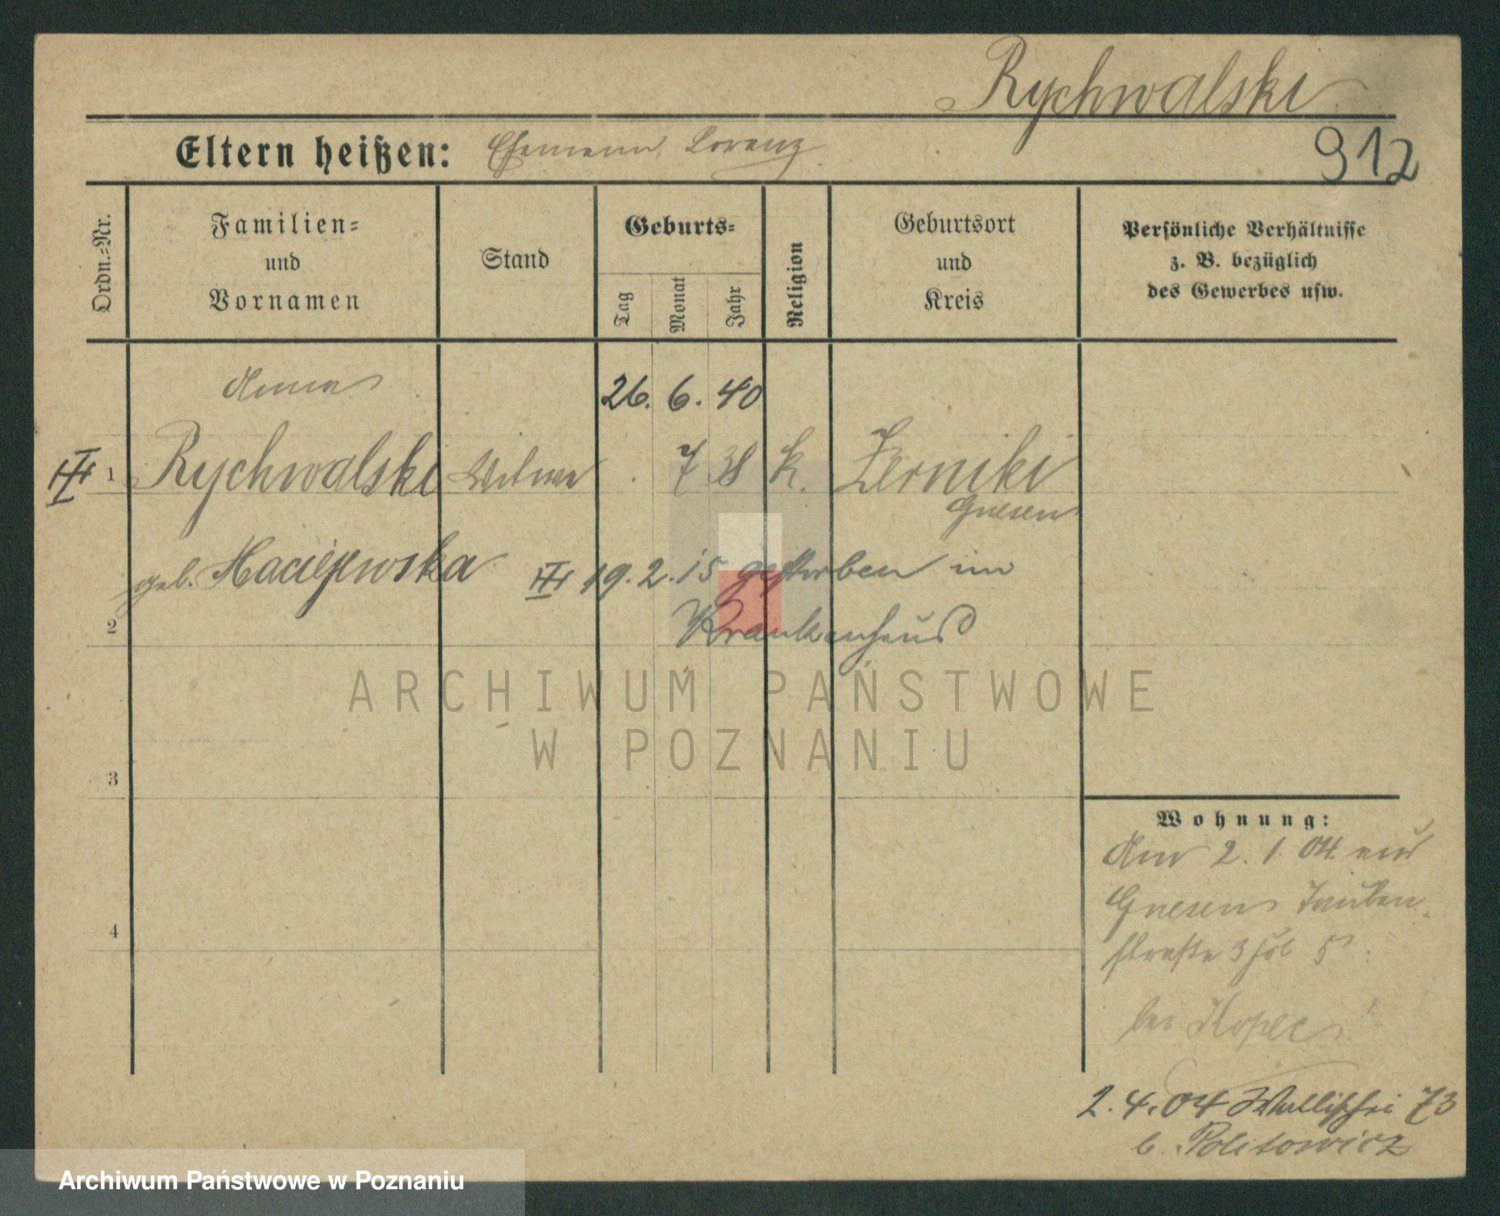 Rychwalski
912
Eltern heißen: Ehemann Lorenz
Ordn.-Nr.
Familien-
und
Vornamen
Stand
Geburts-
Tag
Monat
Jahr
Religion
Geburtsort
und
Kreis
Persönliche Verhältnisse
z. B. bezüglich
des Gewerbes usw.
Anna
26. 6. 40
1 Rychwalski Witwe 7 38 k. Zerniki
Gnesen
geb. Maciejewska
19. 2. 15 gestorben im
2
Krankenhaus
ARCHIWUM PAŃSTWOWE
W POZNANIU
3
4
Wohnung:
Am 2. 1. 04 aus
Gnesen Tauben-
straße 5
bei
2. 4. 04 Wallischei 73
b. Politowicz
Archiwum Państwowe w Poznaniu